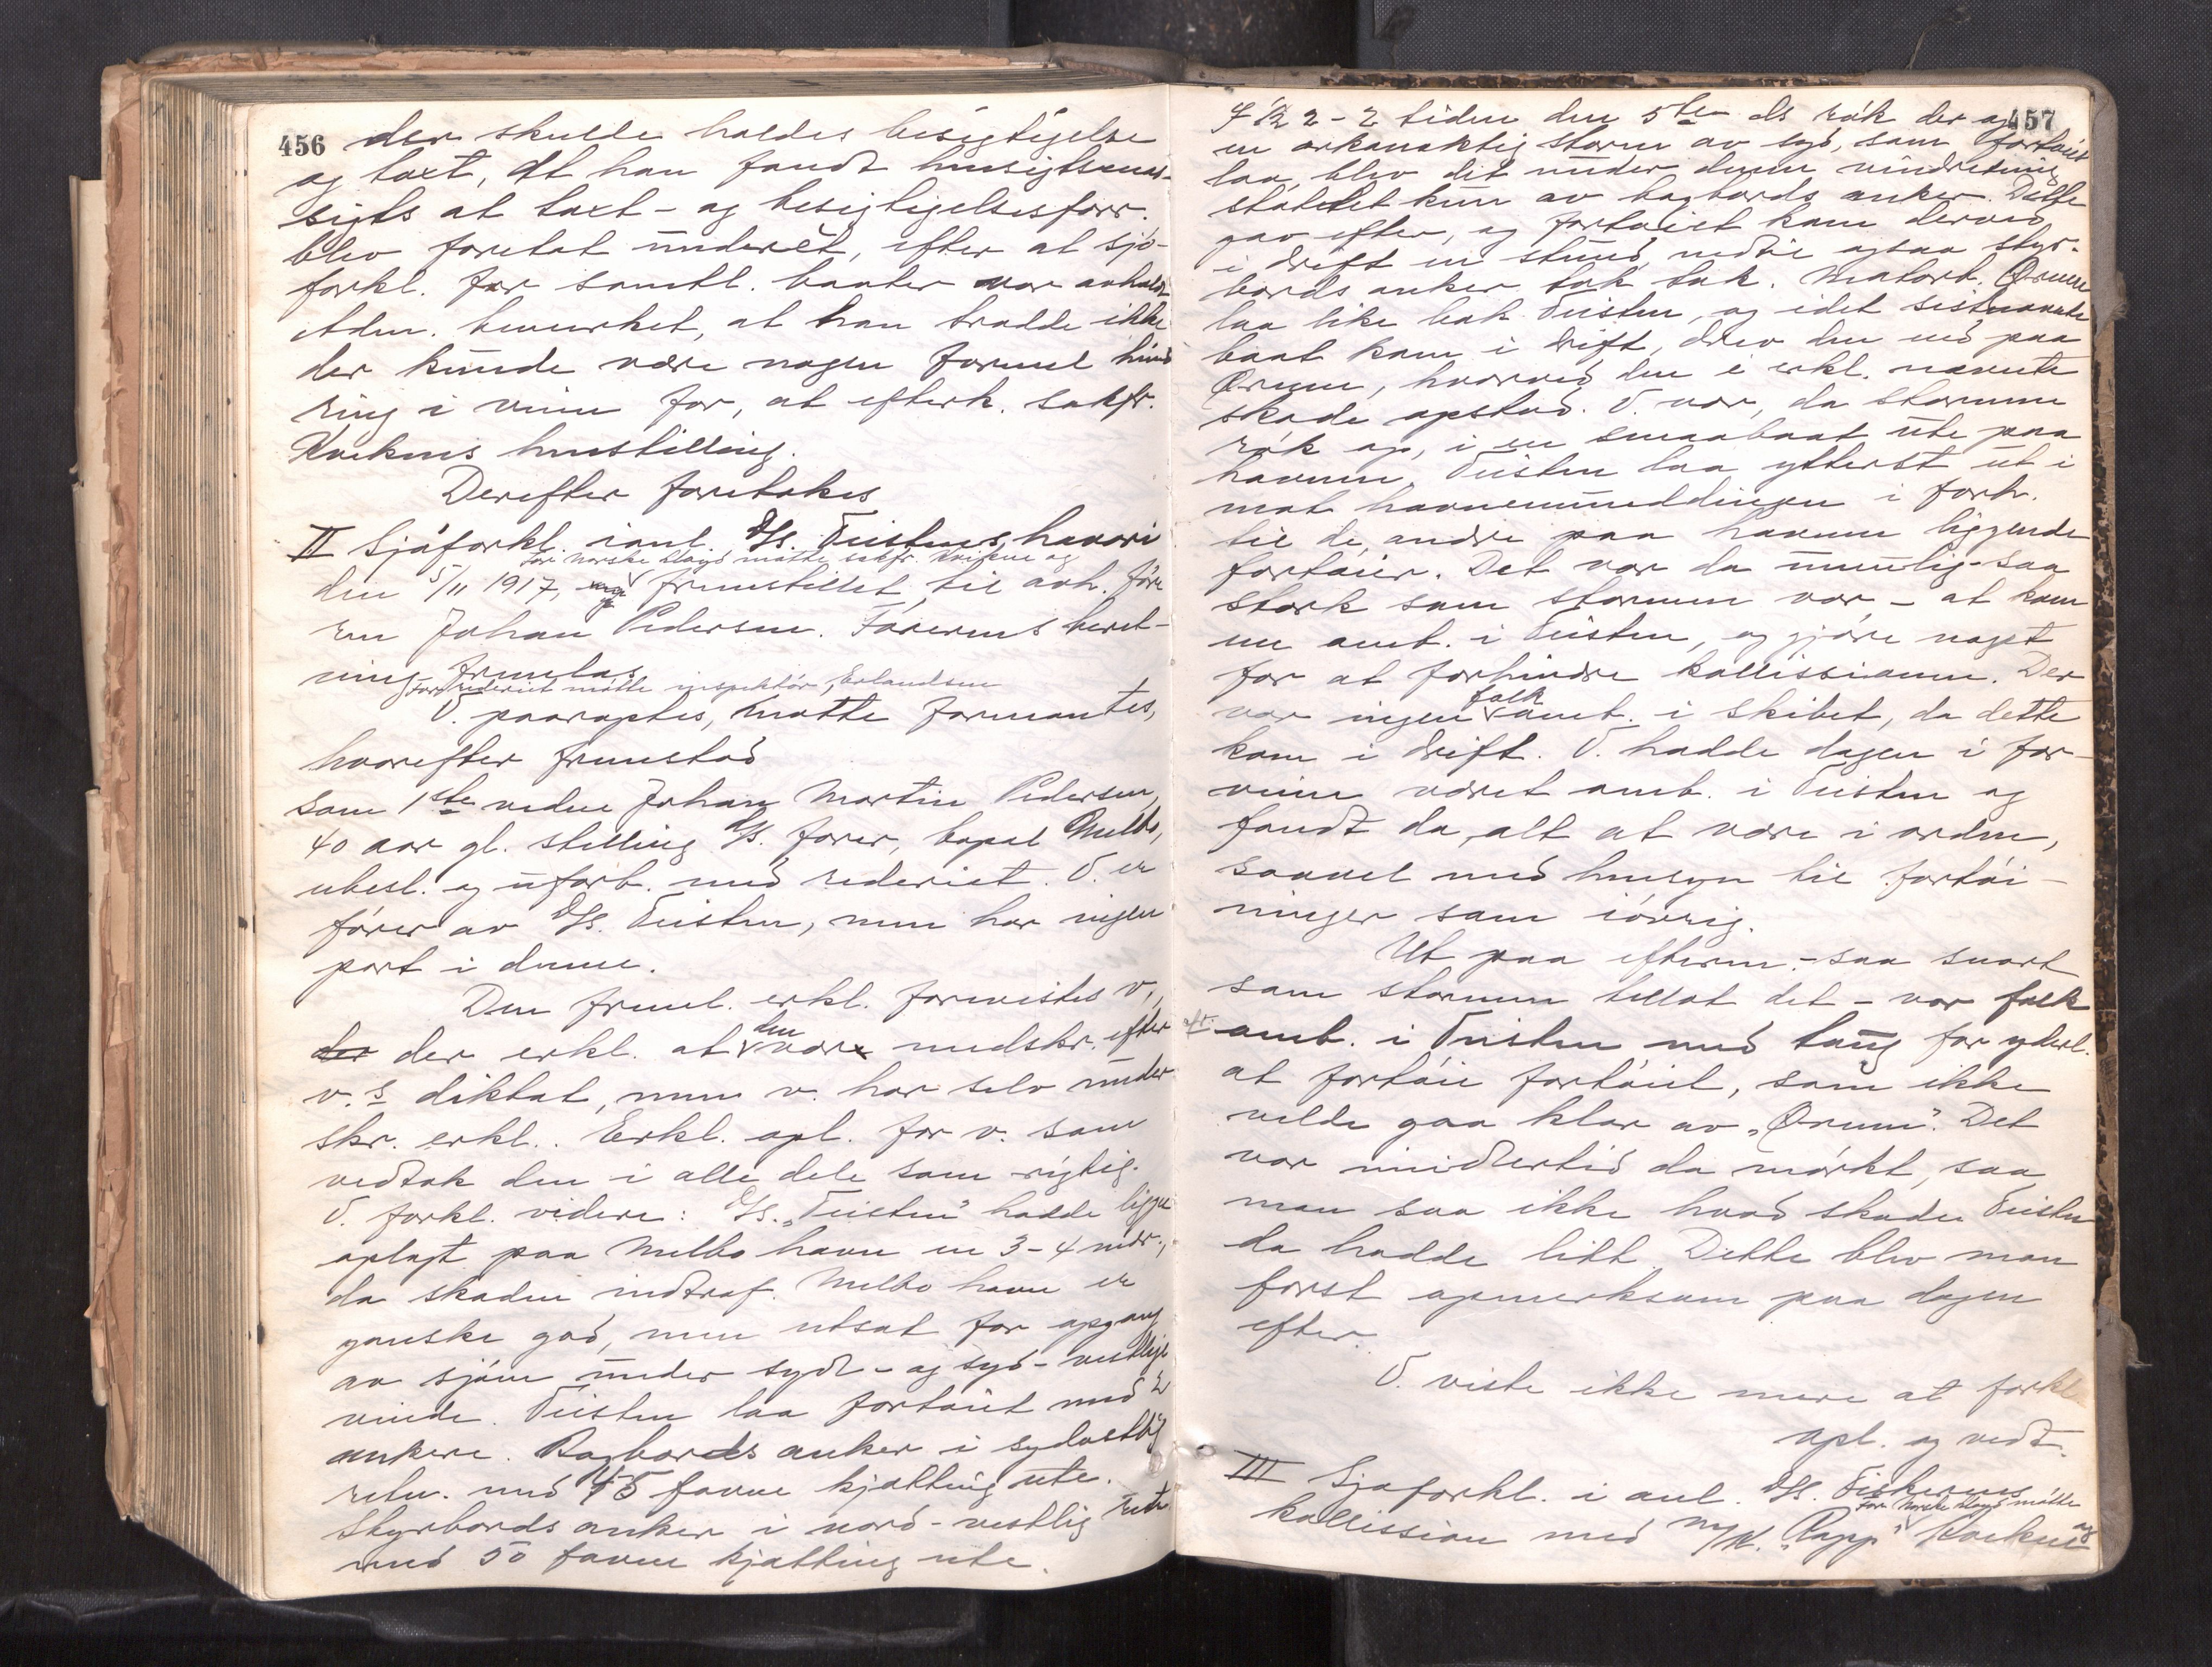 456
der skulde holdes besigtigelse
og taxt, at han fandt hensigtsmæs-
sigts at taxt- og besigtigelsesforr.
blev foretat underét, efter at sjö-
forkl. for samtl. baater var avholdt
Adm. bemerket, at han trodde ikke
der kunde være nogen formel hind
ring i veien for, at efterk. sakfr.
Kveknes henstilling.
Derefter foretokes
II Sjöforkl. i anl. D/S. Teistens havari
for norske Lloyd mötte sakfr. Kveknes og
den 5/11 1917, framstillet til avh. före
ren Johan Pedersen. Förerens beret-
ning fremlas.
For rederiet mötte inspektör, Erlandsen
V. paaroptes, mötte formantes,
hvorefter fremstod
som 1ste vidne Johan Martin Pedersen,
40 aar gl. stilling D/S. förer, bopal Melbo,
ubesl. og uforb. med rederiet. V. er
förer av D/S. Teisten, men har ingen
part i denne.
Den freml. erkl. forevistes v.,
der der erkl. at den var nedskr. efter
v.s diktat, men v. har selv under
skr. erkl.. Erkl. opl. for v. som
vedtok den i alle dele som rigtig.
V. forkl. videre: D/S. "Teisten" hadde ligget
oplagt paa Melbo havn en 3-4 mdr.,
da skaden indtraf. Melbo havn er
ganske god, men utsat for opgang
av sjöen under syd- og syd-vestlige
vinde. Teisten laa fortöiet med 2
ankere. Bagbords anker i sydostlig
retn. med 45 favne kjætting ute.
Styrbords anker i nord-vestlig retn
med 50 favne kjætting ute.
457
I 1/2 2 - 2 tiden den 5te ds rök der op
en orkanaktig storm av syd, som fortöiet
laa, blev det under denne vindretning
støttet kun av bagbords anker. Dette
gav efter, og fartöiet kom derved
i drift en stund, indtil ogsaa styr-
bords anker tok tak. Motorb. Ørnen
laa like bak Teisten, og idet sistnævnte
baat kom i drift, drev den ned paa
Ørnen, hvorved den i erkl. nævnte
skade opstod. V. var, da stormen
rök op, i en smaabaat ute paa
havnen. Teisten laa ytterst ut i
mot havnemundingen i forh.
til de andre paa havnen liggende
fartöier. Det var da umulig - saa
sterk som stormen var - at kom
me omb. i Teisten, og gjöre noget
for at forhindre kollissionen. Der
var ingen folk omb. i skibet, da dette
kom i drift. V. hadde dagen i for-
veien været omb. i Teisten og
fandt da, alt at være i orden,
saavel med hensyn til fortöi-
ninger som iövrig.
Ut paa efterm. - saa snart
som stormen tillot det - var folk
omb. i Teisten med taug for yderl.
at fortöie fartöiet, som ikke
vilde gaa klar av "Ørnen". Det
var imidlertid da mörkt, saa
man saa ikke hvad skade Teisten
da hadde lidt. Dette blev man
först opmerksom paa dagen
efter.
V. viste ikke mere at forkl
Opl. og vedt.
III Sjøforkl. i anl. D/S. Fiskerens
kollission med M/K. "Rapp" for norske Lloyd mötte Kveknes og